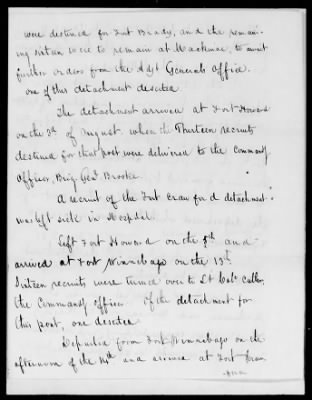 were destined for Fort Brady, and the remain-
ing sixteen were to remain at Mackinac, to await
further orders from the Adjt Generals Office.
one of this detachment deserted.
The detachment arrived at Fort Howard
on the 3d of August. when the Thirteen recruits
destined for that post were delivered to the Commdg
Officer, Brig Genl Brooke.
A recruit of the Fort Crawford detachment
was left sick in Hospital.
Left Fort Howard on the 5th and
arrived at Fort Winnebago on the 13th
Sixteen recruits were turned over to Lt Col. Cutler,
the Commandg officer. Of the detachment for
this post, one deserted.
Departed from Fort Winnebago on the
afternoon of the 14th and arrived at Fort Craw